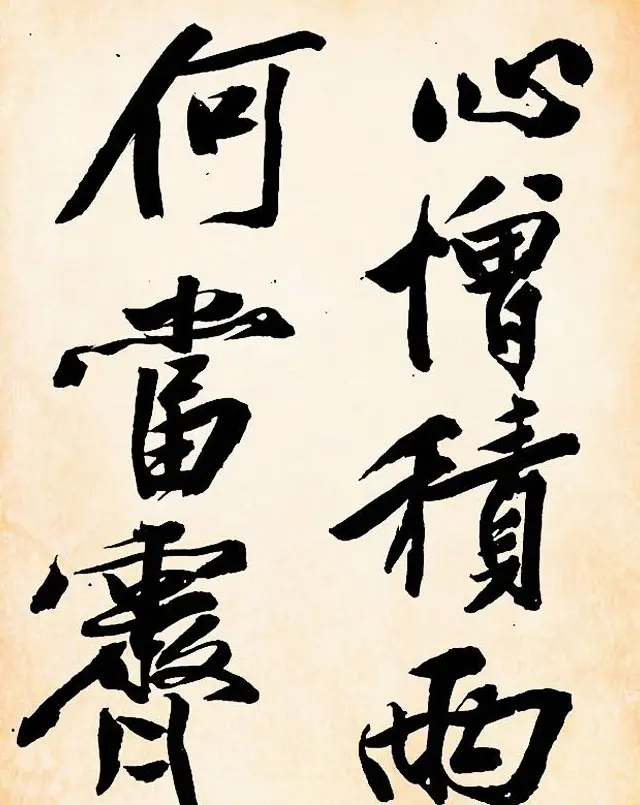 心憎積雨
何當霽